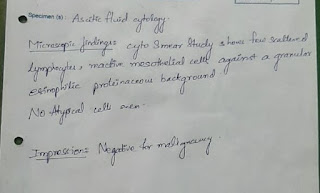 Specimen (s) : Ascitic fluid cytology.
Microscopic findings: cyto smear study shows few scattered
lymphocytes, reactive mesothelial cells against a granular
eosinophilic proteinaceous background.
No Atypical cells seen.
Impression: Negative for malignancy.